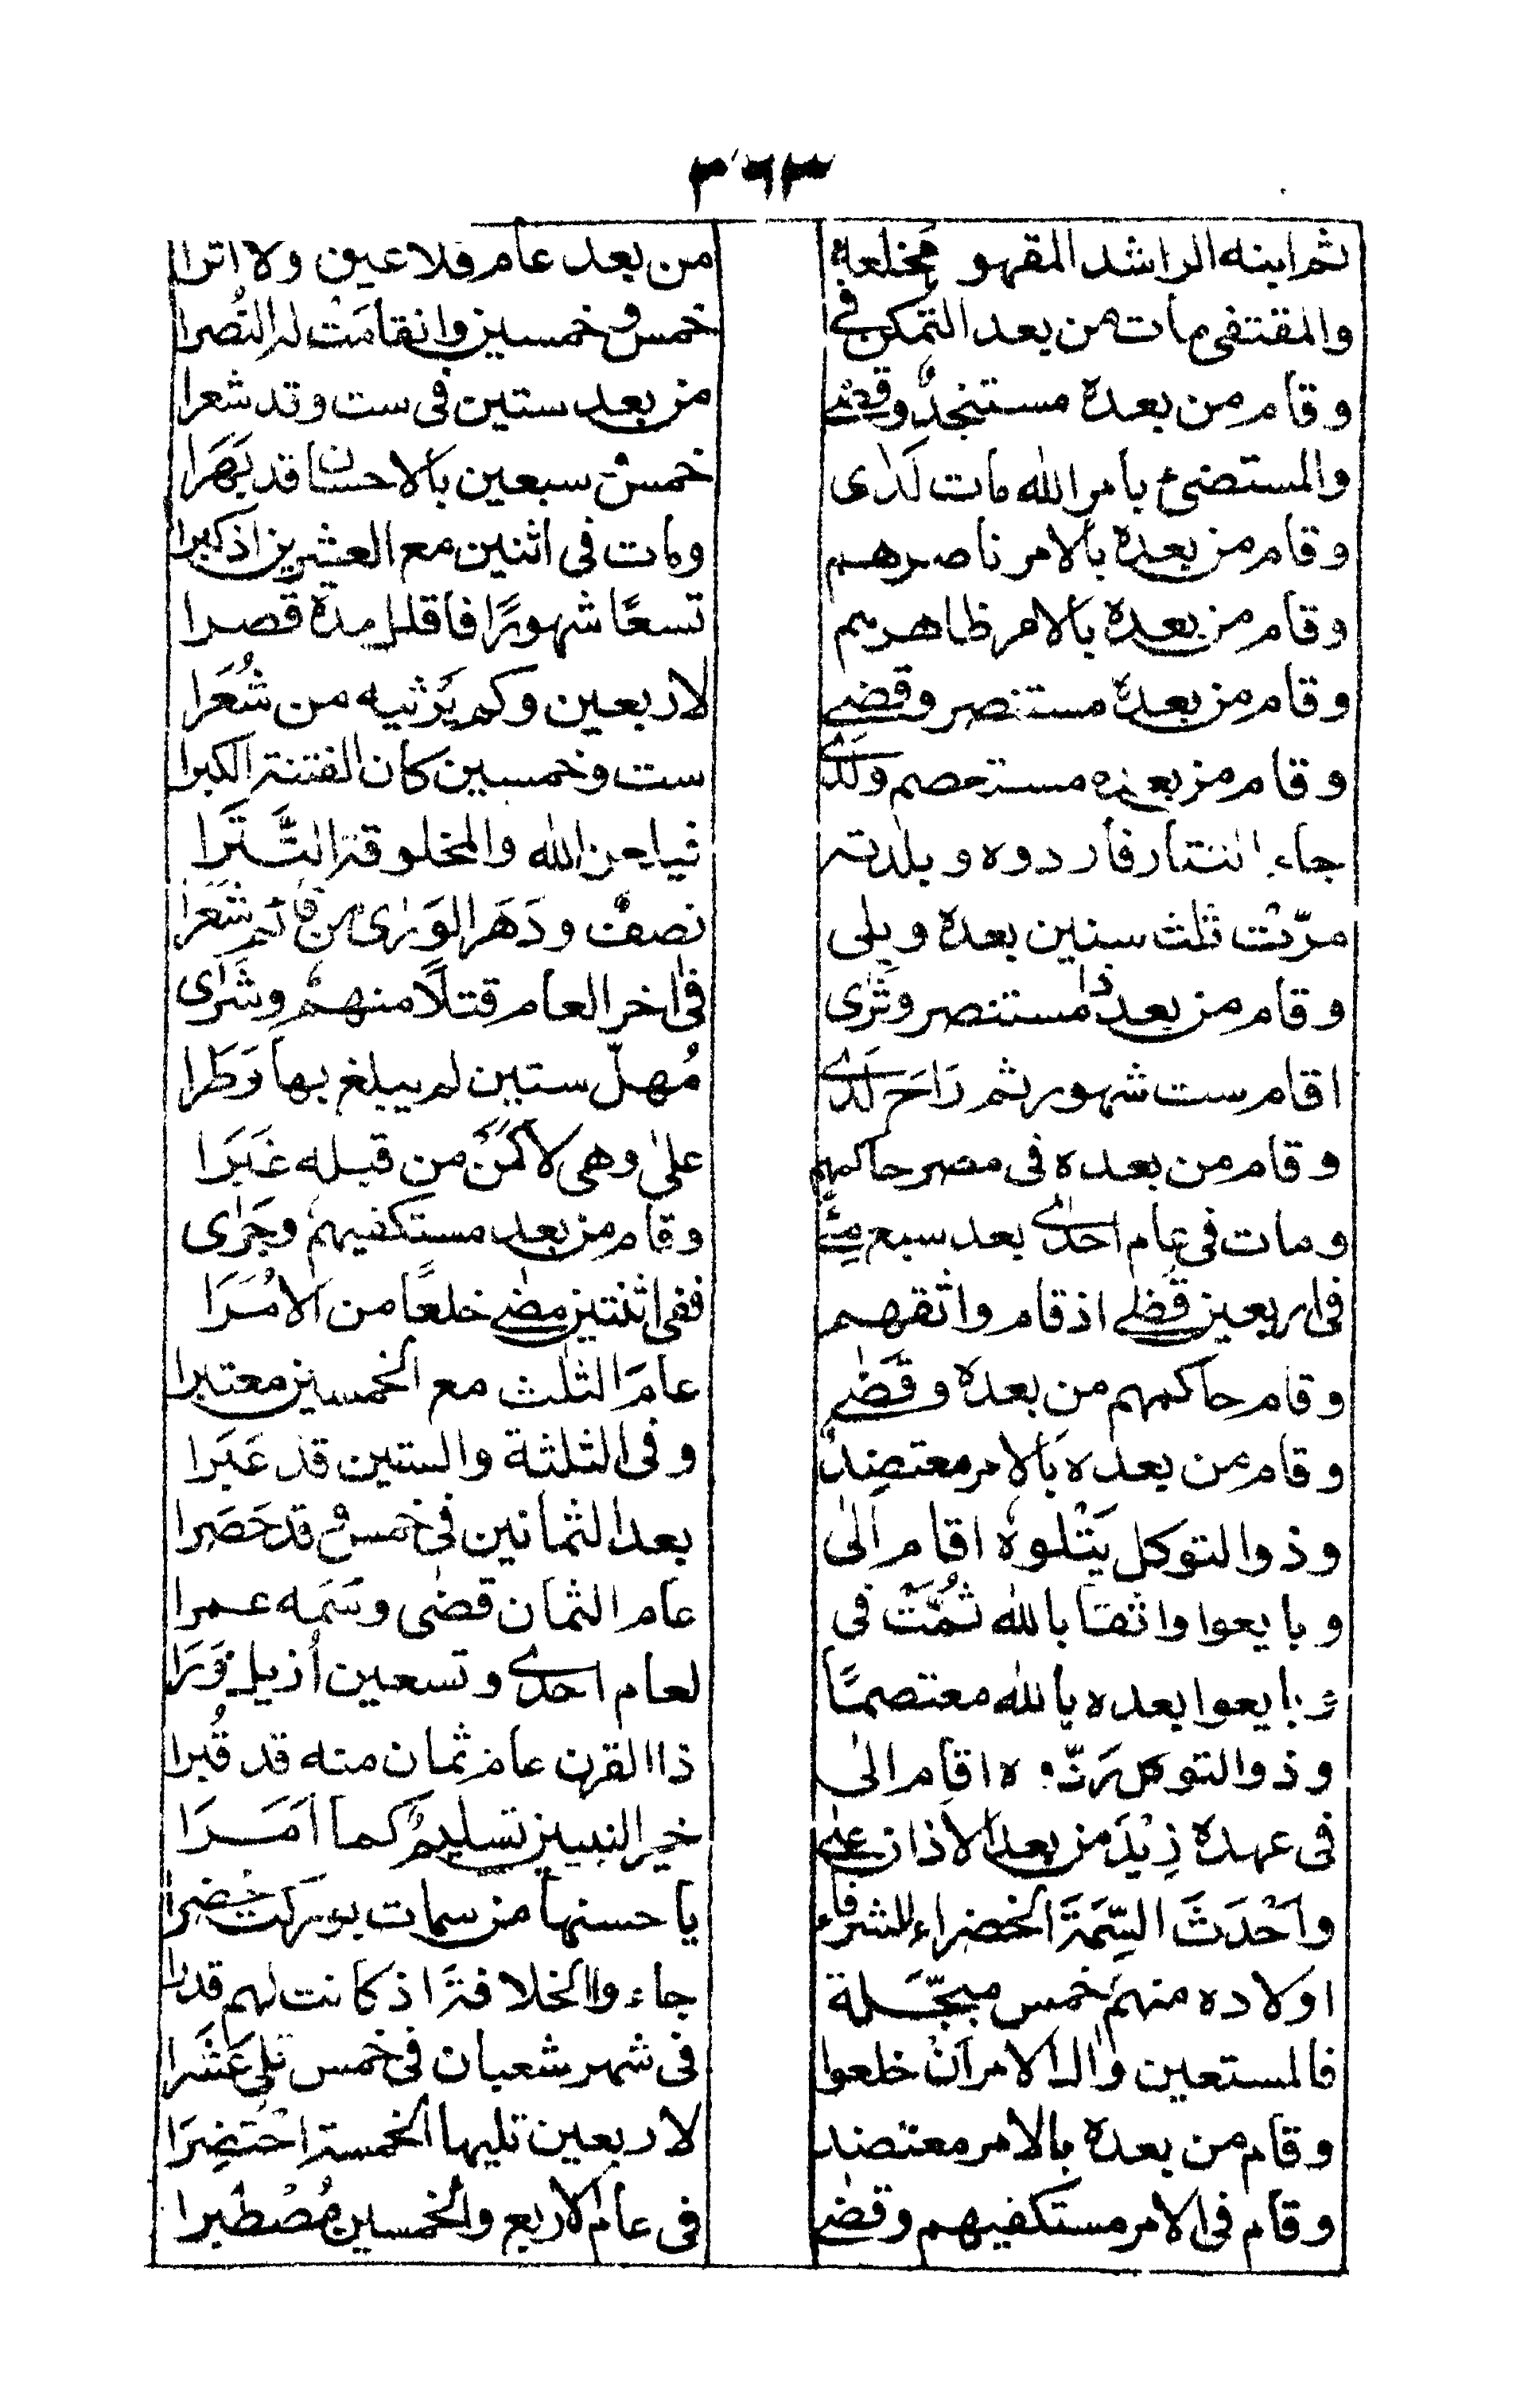 ٣٦٣
ثم ابنه الراشد المقهو مخلعة من بعد عام فلا عين ولا اثرا
والمقتفى مات من بعد التمكن في خمس وخمسين وانقامت له النُصرا
وقام من بعده مستنجدٌ وقضى من بعد ستين فى ست وقد شعرا
والمستضىء بامر الله مات لَدٰى خمس وسبعين بالاحسان قد بَهَرا
وقام من بعده بالامر ناصرهم ومات فى اثنين مع العشرين اذ كبرا
وقام من بعده بالامر ظاهرهم تسعًا شهورًا فاقلل مدة قصرا
وقام من بعده مستنصر وقضى لاربعين وكم يَرثيه من شُعَرا
وقام من بعده مستعصم ولَدٰى ست وخمسين كان الفتنة الكبرا
جاء التتار فأردوه وبلدته فيا لعن الله والمخلوقة التَّتَرا
مرّت ثلث سنين بعده ويلى نصفٌ ودَهَر الوَرٰى من قائم شَعَرا
وقام من بعد ذا مستنصر وثرٰى فى اخر العام قتلًا منهمُ وشَرٰى
اقام ست شهور ثم رَاحَ لَدٰى مُهلّ ستين لم يبلغ بها وَطَرا
وقام من بعده فى مصر حاكمهم علٰى وهى لا كَمَنْ من قبله غَبَرَا
ومات فى عام احدٰى بعد سبع مِئٍ وقام من بعد مستكفيهمُ وجَرٰى
فى اربعين قضٰى اذ قام واثقهم ففى اثنتين مضٰى خلعًا من الامُرَا
وقام حاكمهم من بعده وقَضٰى عامَ الثلٰث مع الخمسين معتبرا
وقام من بعده بالامر معتضدٌ وفى الثلثة والستين قد عَبَرا
وذو التوكل يَتْلوه اقام اَلٰى بعد الثمانين فى خمس وقد حَصَرا
وبايعوا واثقا بالله ثُمَّتْ فى عام الثمان قضٰى وسَمِه عمرا
وبايعوا بعده بالله معتصمًا لعام احدٰى وتسعين اُزيل وَرَا
وذو التوكل رَدّوه اقام الٰى ذا القرن عام ثمان منه قد قُبرا
فى عهده زِيْدَ من بعد الاذان على خير النبيين تسليمٌ كما اَمَرَا
واَحْدَثَ السِّمَةَ الخضراء للشرفاء يا حسنها من سمات بوركت خضرا
اولاده منهمُ خمس مبجَّلة جاءوا الخلافةَ اذ كانت لهم قدرا
فالمستعين واٰل الامر اَنْ خلعوا فى شهر شعبان فى خمس تلى عَشَرا
وقام من بعده بالامر معتضد لاربعين تليها الخمسة احْتُضِرَا
وقام فى الامر مستكفيهم وقضٰى فى عام الاربع والخمسين مُصْطَبرا